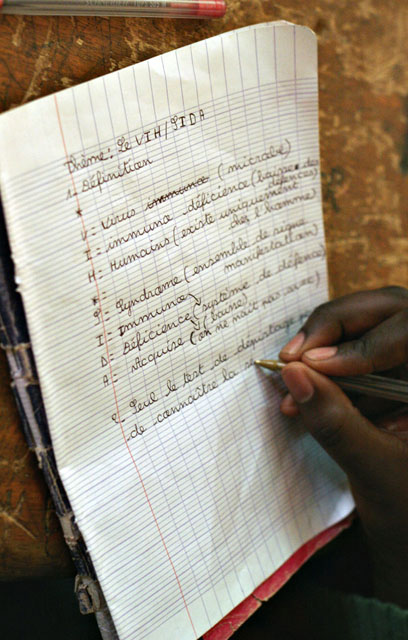 Thème: Le VIH/SIDA
1. Définition
* V = Virus immuno (microbe)
I = immuno déficience (baisse des défences)
H = Humains (existe uniquement chez l'homme)
* S = Syndrome (ensemble de signe manifestation)
I Immuno (système de défence)
D = Déficience (baisse)
A = Acquise (on ne nait pas avec)
2 - Seul le test de dépistage
de connaître la